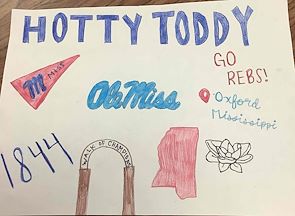 HOTTY TODDY
M Miss
GO
REBS!
Ole Miss
Oxford
Mississippi
1844
WALK OF CHAMPIONS